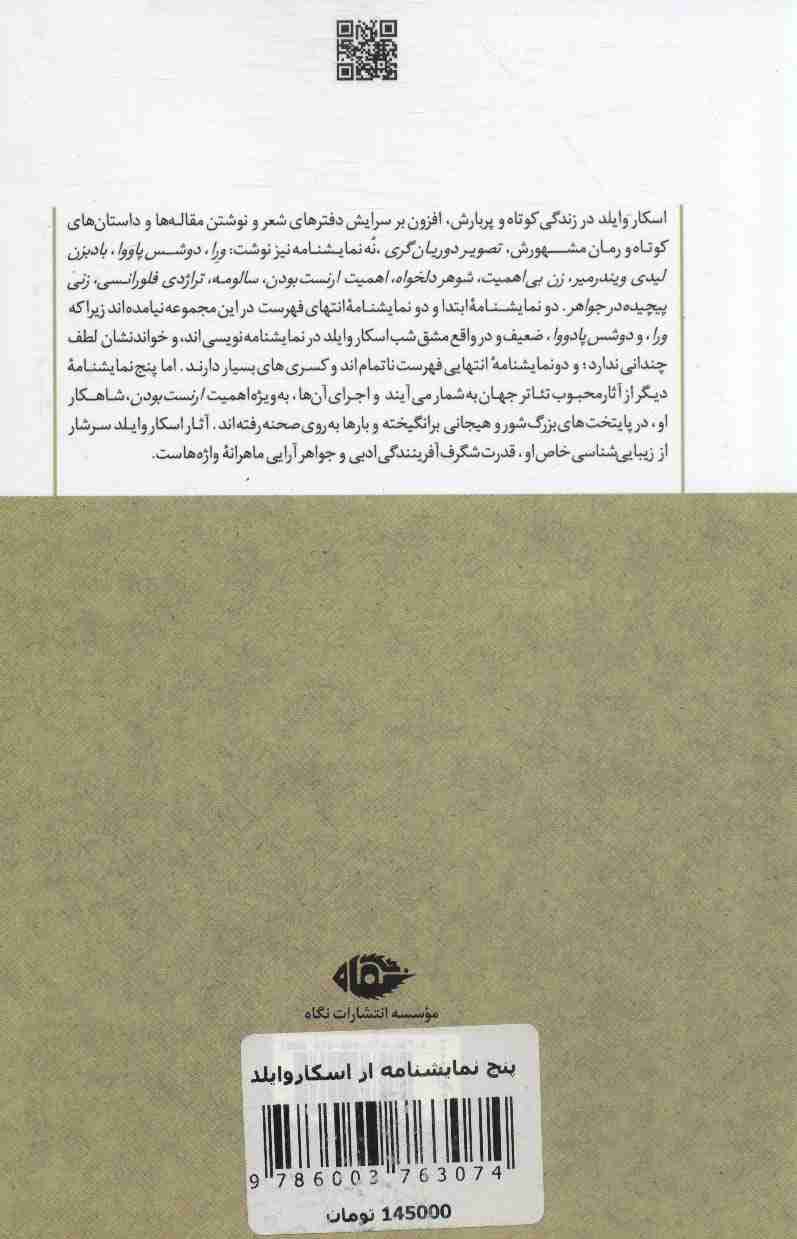 اسکار وایلد در زندگی کوتاه و پربارش، افزون بر سرایش دفترهای شعر و نوشتن مقاله‌ها و داستان‌های
کوتاه و رمان مشهورش، تصویر دوریان‌گری، نُه نمایشنامه نیز نوشت: ورا، دوشس پاووا، بادبزن
لیدی ویندرمیر، زن بی‌اهمیت، شوهر دلخواه، اهمیت ارنست بودن، سالومه، تراژدی فلورانسی، زنی
پیچیده در جواهر. دو نمایشنامهٔ ابتدا و دو نمایشنامهٔ انتهای فهرست در این مجموعه نیامده‌اند زیرا که
ورا، و دوشس پادووا، ضعیف و در واقع مشق شب اسکار وایلد در نمایشنامه‌نویسی‌اند، و خواندنشان لطف
چندانی ندارد؛ و دو نمایشنامهٔ انتهایی فهرست ناتمام‌اند و کسری‌های بسیار دارند. اما پنج نمایشنامهٔ
دیگر از آثار محبوب تئاتر جهان به شمار می‌آیند و اجرای آن‌ها، به‌ویژه اهمیت ارنست بودن، شاهکار
او، در پایتخت‌های بزرگ شور و هیجانی برانگیخته و بارها به روی صحنه رفته‌اند. آثار اسکار وایلد سرشار
از زیبایی‌شناسی خاص او، قدرت شگرف آفرینندگی ادبی و جواهرآرایی ماهرانهٔ واژه‌هاست.
نگاه
مؤسسه انتشارات نگاه
پنج نمایشنامه از اسکاروایلد
9 786003 763074
145000 تومان